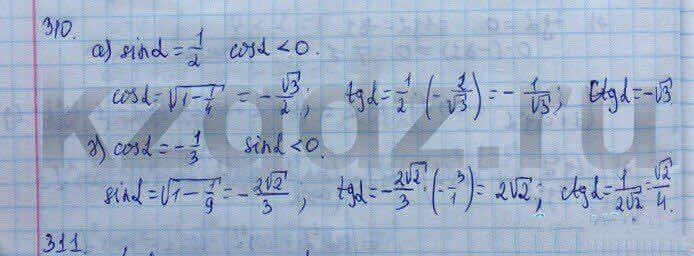 310.
a) sinα = 1/2 cosα < 0.
cosα = √(1 - 1/4) = -√3/2; tgα = 1/2 · (-2/√3) = -1/√3; Ctgα = -√3
γ) cosα = -1/3 sinα < 0.
sinα = √(1 - 1/9) = -2√2/3; tgα = -2√2/3 · (-3/1) = 2√2; ctgα = 1/2√2 = √2/4.
311.